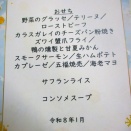 おせち
野菜のグラッセ／テリーヌ／
ローストビーフ
カラスガレイのチーズパン粉焼き
ズワイ蟹爪フライ／
鴨の燻製と甘夏みかん
スモークサーモン／生ハムポテト
カプレーゼ／五福焼売／海老マヨ
サフランライス
コンソメスープ
令和8年1月